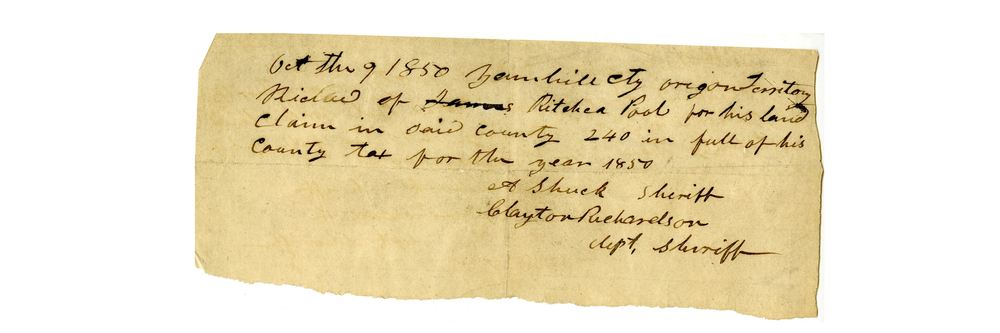 Oct the 9 1850 Yamhill cty origon Territory
of James Ritchea Pool for his land
Claim in said county 240 in full of his
County tax for the year 1850
A Shuck Sheriff
Clayton Richardson
dept, Sheriff